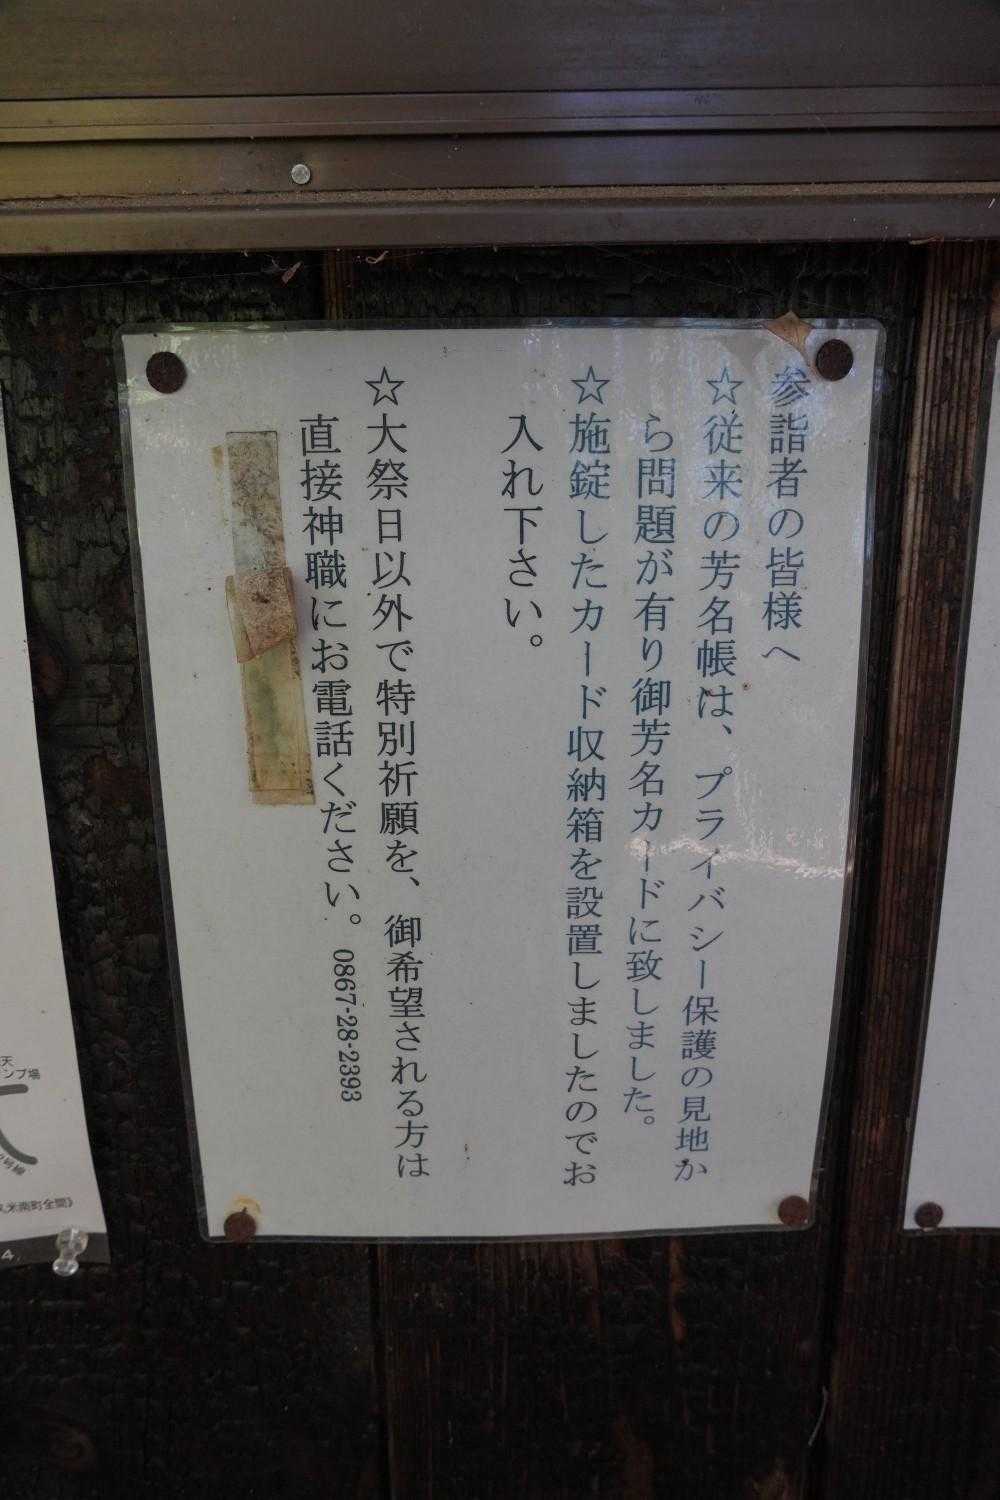 参詣者の皆様へ
☆従来の芳名帳は、プライバシー保護の見地か
ら問題が有り御芳名カードに致しました。
☆施錠したカード収納箱を設置しましたのでお
入れ下さい。
☆大祭日以外で特別祈願を、御希望される方は
直接神職にお電話ください。0867-28-2393
天
ンプ場
号線
久米南町全間》
4.